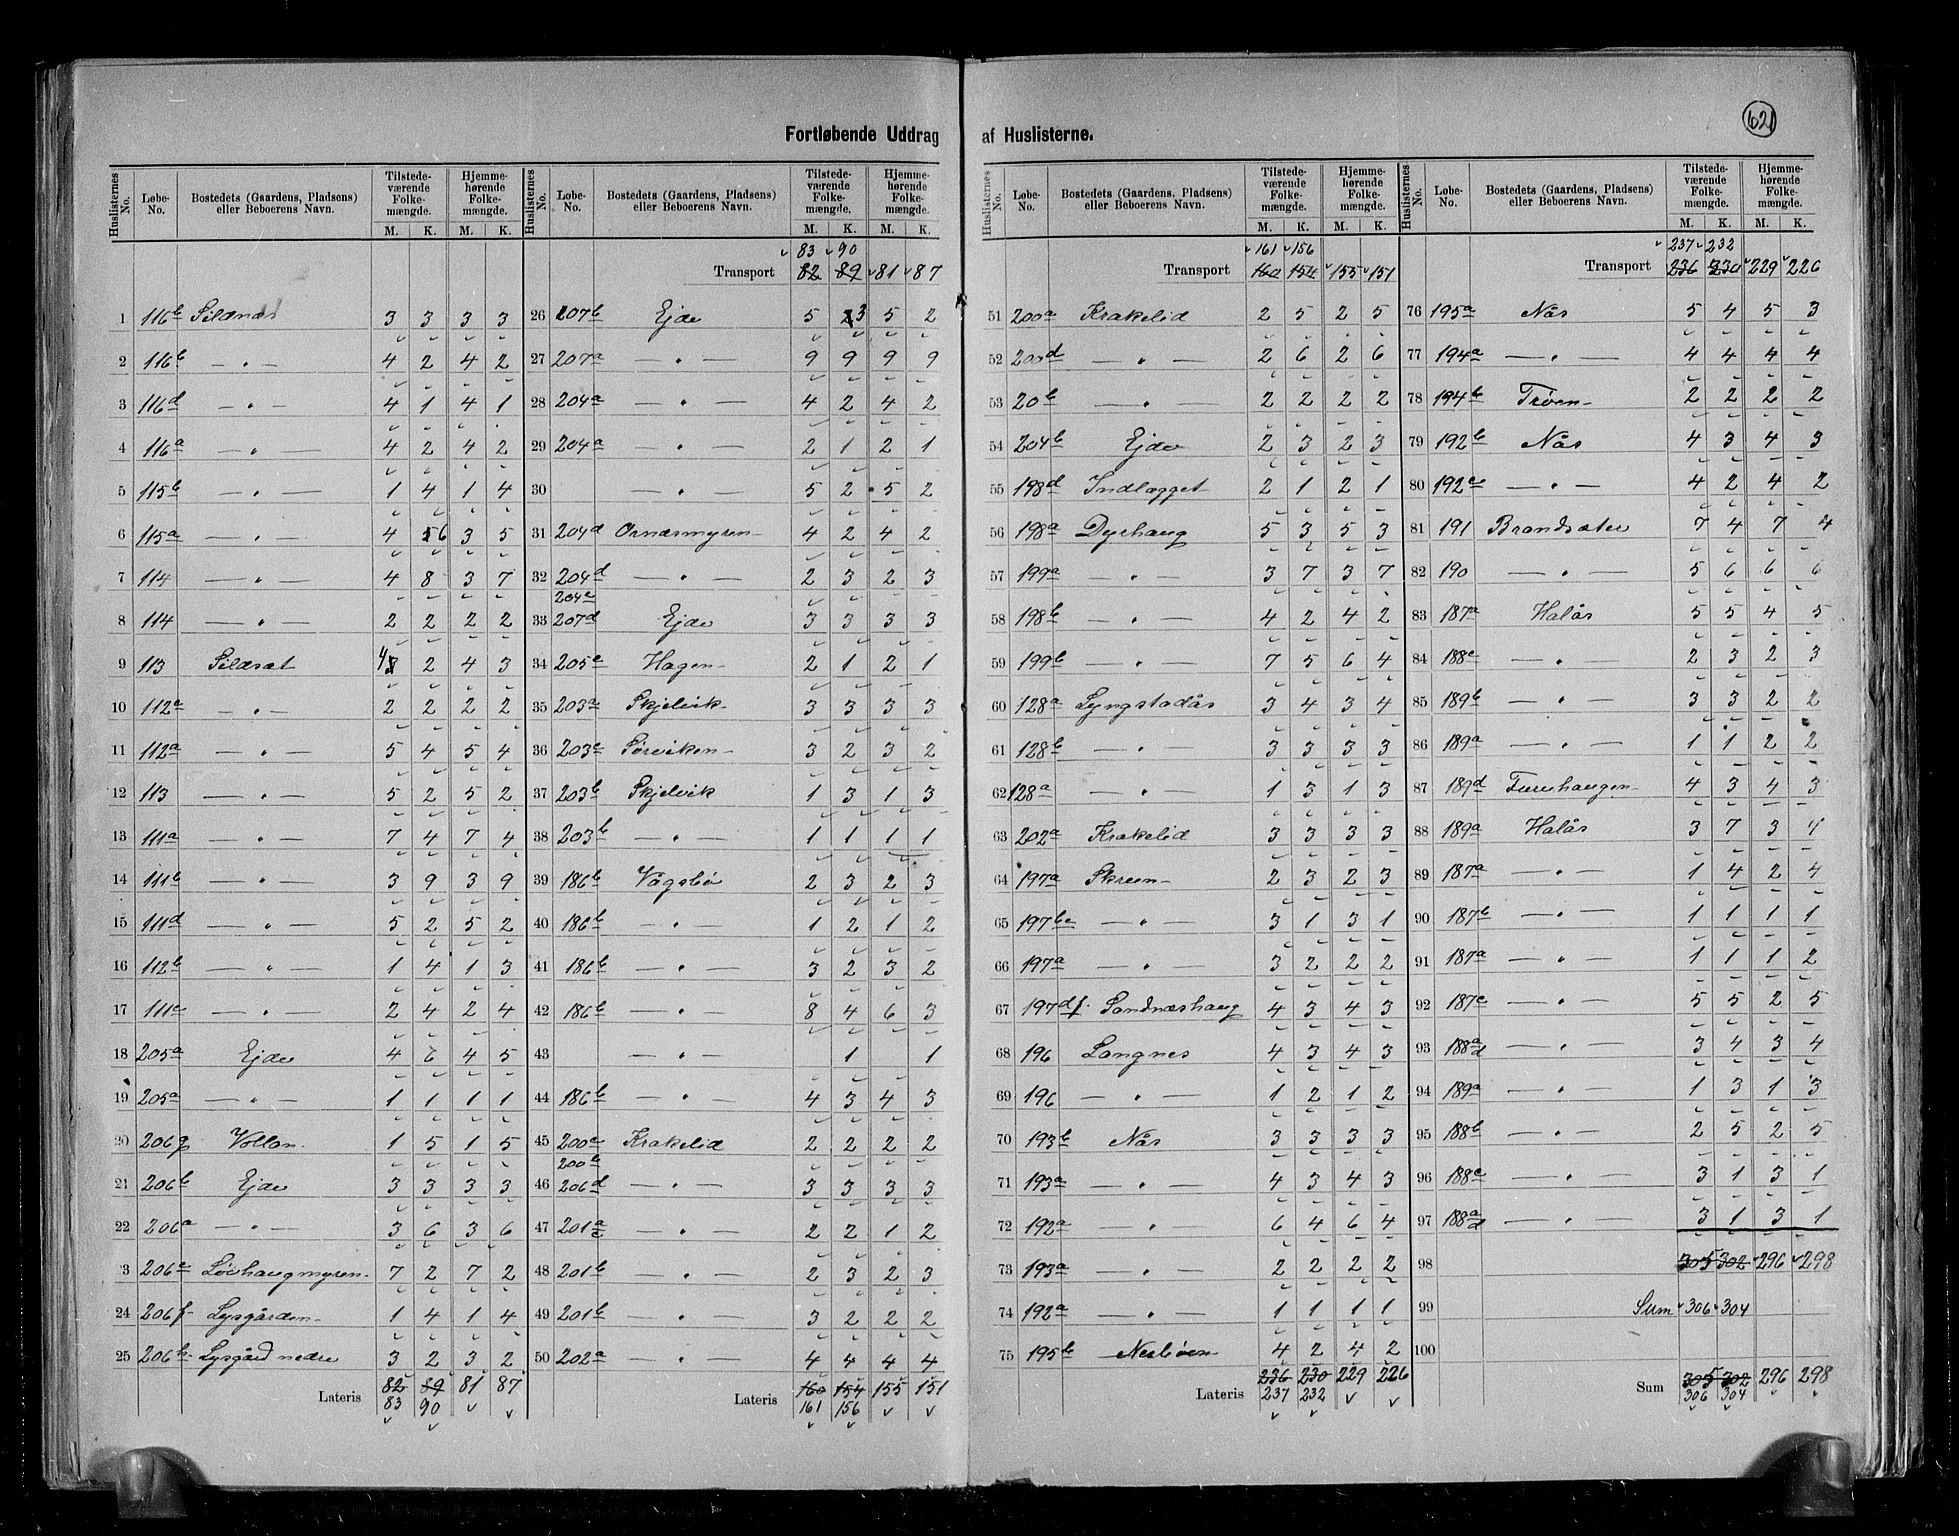 62
Fortløbende Uddrag af Huslisterne.
Huslisternes No. Løbe-No. Bostedets (Gaardens, Pladsens) eller Beboerens Navn. Tilstede-værende Folke-mængde. Hjemme-hørende Folke-mængde.
M. K. M. K.
1 116b Sildnæs 3 3 3 3
2 116b — " — 4 2 4 2
3 116d — " — 4 1 4 1
4 116a — " — 4 2 4 2
5 115b — " — 1 4 1 4
6 115a — " — 4 6 3 5
7 114 — " — 4 8 3 7
8 114 — " — 2 2 2 2
9 113 Sildsæt 4 2 4 3
10 112a — " — 2 2 2 2
11 112a — " — 5 4 5 4
12 113 — " — 5 2 5 2
13 111a — " — 7 4 7 4
14 111b — " — 3 9 3 9
15 111d — " — 5 2 5 2
16 112b — " — 1 4 1 3
17 111c — " — 2 4 2 4
18 205a Ejde 4 6 4 5
19 205a — " — 1 1 1 1
20 206g Vollan 1 5 1 5
21 206b Ejde 3 3 3 3
22 206a — " — 3 6 3 6
3 206e Løvhaugmyren 7 2 7 2
24 206f Lysgården 1 4 1 4
25 206h Lysgård nedre 3 2 3 2
Lateris 82 89 81 87
83 90
Huslisternes No. Løbe-No. Bostedets (Gaardens, Pladsens) eller Beboerens Navn. Tilstede-værende Folke-mængde. Hjemme-hørende Folke-mængde.
M. K. M. K.
83 90
Transport 82 89 81 87
26 207b Ejde 5 3 5 2
27 207a — " — 9 9 9 9
28 204a — " — 4 2 4 2
29 204a — " — 2 1 2 1
30 — " — 5 2 5 2
31 204d Ornæsmyren 4 2 4 2
32 204d — " — 2 3 2 3
204e
33 207d Ejde 3 3 3 3
34 205e Hagen 2 1 2 1
35 203a Skjelvik 3 3 3 3
36 203c Sørviken 3 2 3 2
37 203b Skjelvik 1 3 1 3
38 203b — " — 1 1 1 1
39 186b Vågsbø 2 3 2 3
40 186b — " — 1 2 1 2
41 186b — " — 3 2 3 2
42 186b — " — 8 4 6 3
43 — " — 1 1
44 186b — " — 4 3 4 3
45 200c Krakelid 2 2 2 2
200b
46 206d — " — 3 3 3 3
47 201a c — " — 2 2 1 2
48 201b — " — 2 3 2 3
49 201b — " — 3 2 2 2
50 202a — " — 4 4 4 4
Lateris 160 154 155 151
161 156
Huslisternes No. Løbe-No. Bostedets (Gaardens, Pladsens) eller Beboerens Navn. Tilstede-værende Folke-mængde. Hjemme-hørende Folke-mængde.
M. K. M. K.
161 156
Transport 160 154 155 151
51 200a Krakelid 2 5 2 5
52 200d — " — 2 6 2 6
53 20b — " — 2 2 2 2
54 204b Ejde 2 3 2 3
55 198d Indlægget 2 1 2 1
56 198a Dyrhaug 5 3 5 3
57 199a — " — 3 7 3 7
58 198b — " — 4 2 4 2
59 199b — " — 7 5 6 4
60 128a Lyngstadås 3 4 3 4
61 128b — " — 3 3 3 3
62 128a — " — 1 3 1 3
63 202a Krakelid 3 3 3 3
64 197a Skreen 2 3 2 3
65 197bc — " — 3 1 3 1
66 197a — " — 3 2 2 2
67 197df Sandneshaug 4 3 4 3
68 196 Langnes 4 3 4 3
69 196 — " — 1 2 1 2
70 193b Nås 3 3 3 3
71 193a — " — 4 3 4 3
72 192a — " — 6 4 6 4
73 193a — " — 2 2 2 2
74 192a — " — 1 1 1 1
75 195b Nesbøen 4 2 4 2
Lateris 236 230 229 226
237 232
Huslisternes No. Løbe-No. Bostedets (Gaardens, Pladsens) eller Beboerens Navn. Tilstede-værende Folke-mængde. Hjemme-hørende Folke-mængde.
M. K. M. K.
237 232
Transport 236 230 229 226
76 195a Nås 5 4 5 3
77 194a — " — 4 4 4 4
78 194b Trøen 2 2 2 2
79 192b Nås 4 3 4 3
80 192c — " — 4 2 4 2
81 191 Brandsæter 7 4 7 4
82 190 — " — 5 6 6 6
83 187a Halås 5 5 4 5
84 188c — " — 2 3 2 3
85 189b — " — 3 3 2 2
86 189a — " — 1 1 2 2
87 189d Furuhaugen 4 3 4 3
88 189a Halås 3 7 3 4
89 187a — " — 1 4 2 4
90 187b — " — 1 1 1 1
91 187a — " — 1 1 1 2
92 187c — " — 5 5 2 5
93 188a d — " — 3 4 3 4
94 189a — " — 1 3 1 3
95 188b — " — 2 5 2 5
96 188c — " — 3 1 3 1
97 188a d — " — 3 1 3 1
98 305 302 296 298
99 Sum 306 304
100
Sum 305 302 296 298
306 304